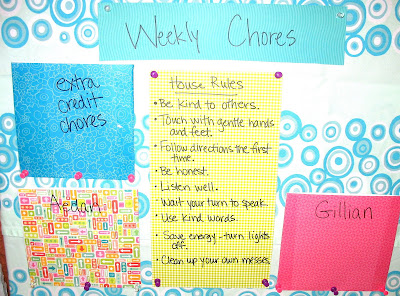 Weekly Chores
extra
credit
chores
House Rules
• Be kind to others.
• Touch with gentle hands
and feet.
• Follow directions the first
time.
• Be honest.
• Listen well.
• Wait your turn to speak.
• Use kind words.
• Save energy - turn lights
off.
• Clean up your own messes.
Aedan
Gillian